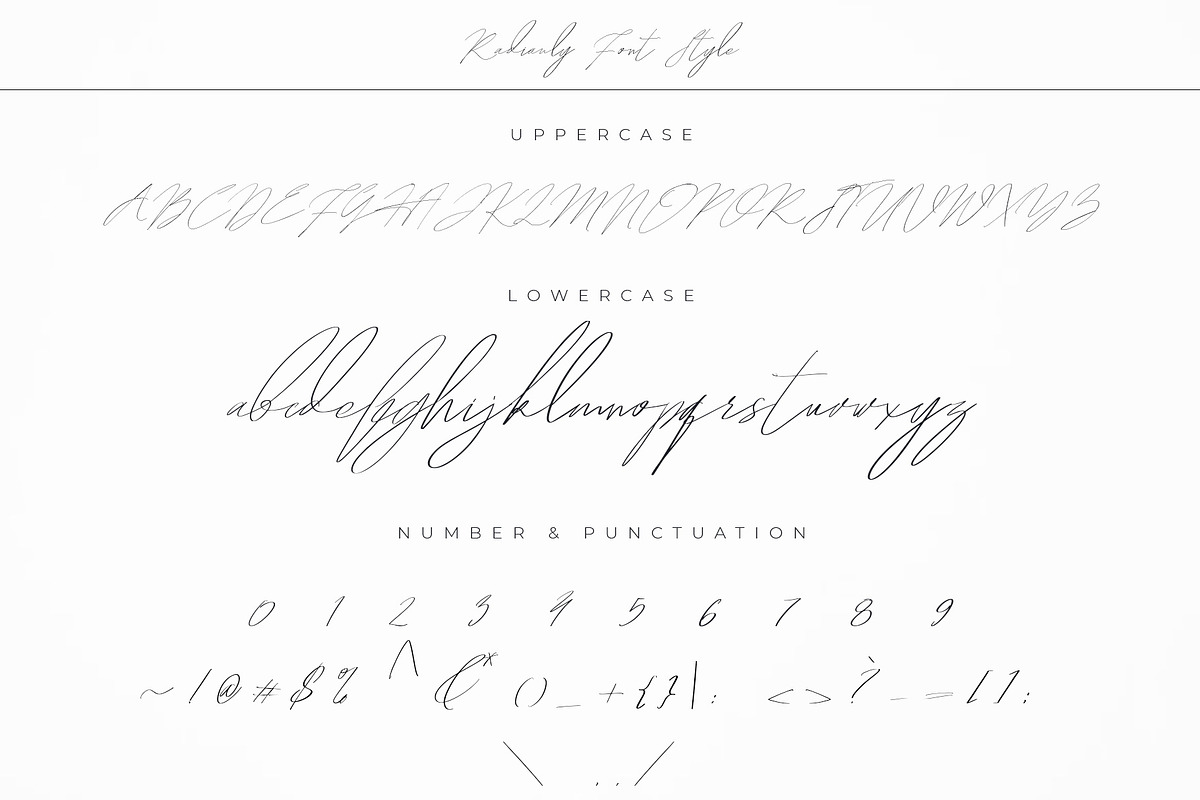 Radianly Font Style
UPPERCASE
ABCDEFGHIJKLMNOPQRSTUVWXYZ
LOWERCASE
abcdefghijklmnopqrstuvwxyz
NUMBER & PUNCTUATION
0 1 2 3 4 5 6 7 8 9
~ ! @ # $ % ^ & * ( ) _ + { } | : < > ? - = [ ] ;
\ , . /